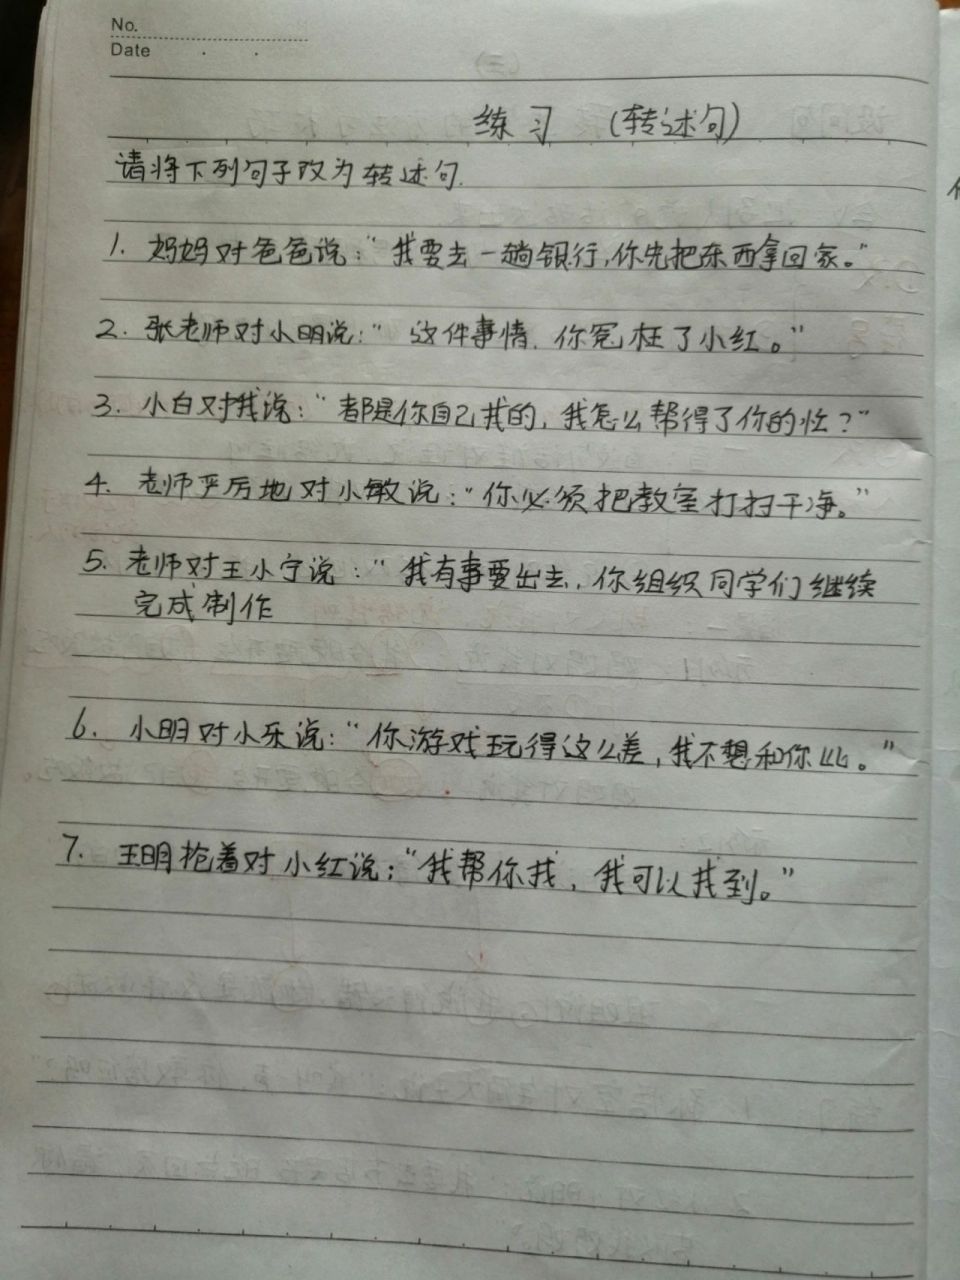 No.
Date
练习 (转述句)
请将下列句子改为转述句.
1. 妈妈对爸爸说：“我要去一趟银行,你先把东西拿回家。”
2. 张老师对小明说：“这件事情，你冤枉了小红。”
3. 小白对我说：“都是你自己找的，我怎么帮得了你的忙？”
4. 老师严厉地对小敏说：“你必须把教室打扫干净。”
5. 老师对王小宁说：“我有事要出去，你组织同学们继续
完成制作
6. 小明对小乐说：“你游戏玩得这么差，我不想和你比。”
7. 王明抢着对小红说：“我帮你找，我可以找到。”